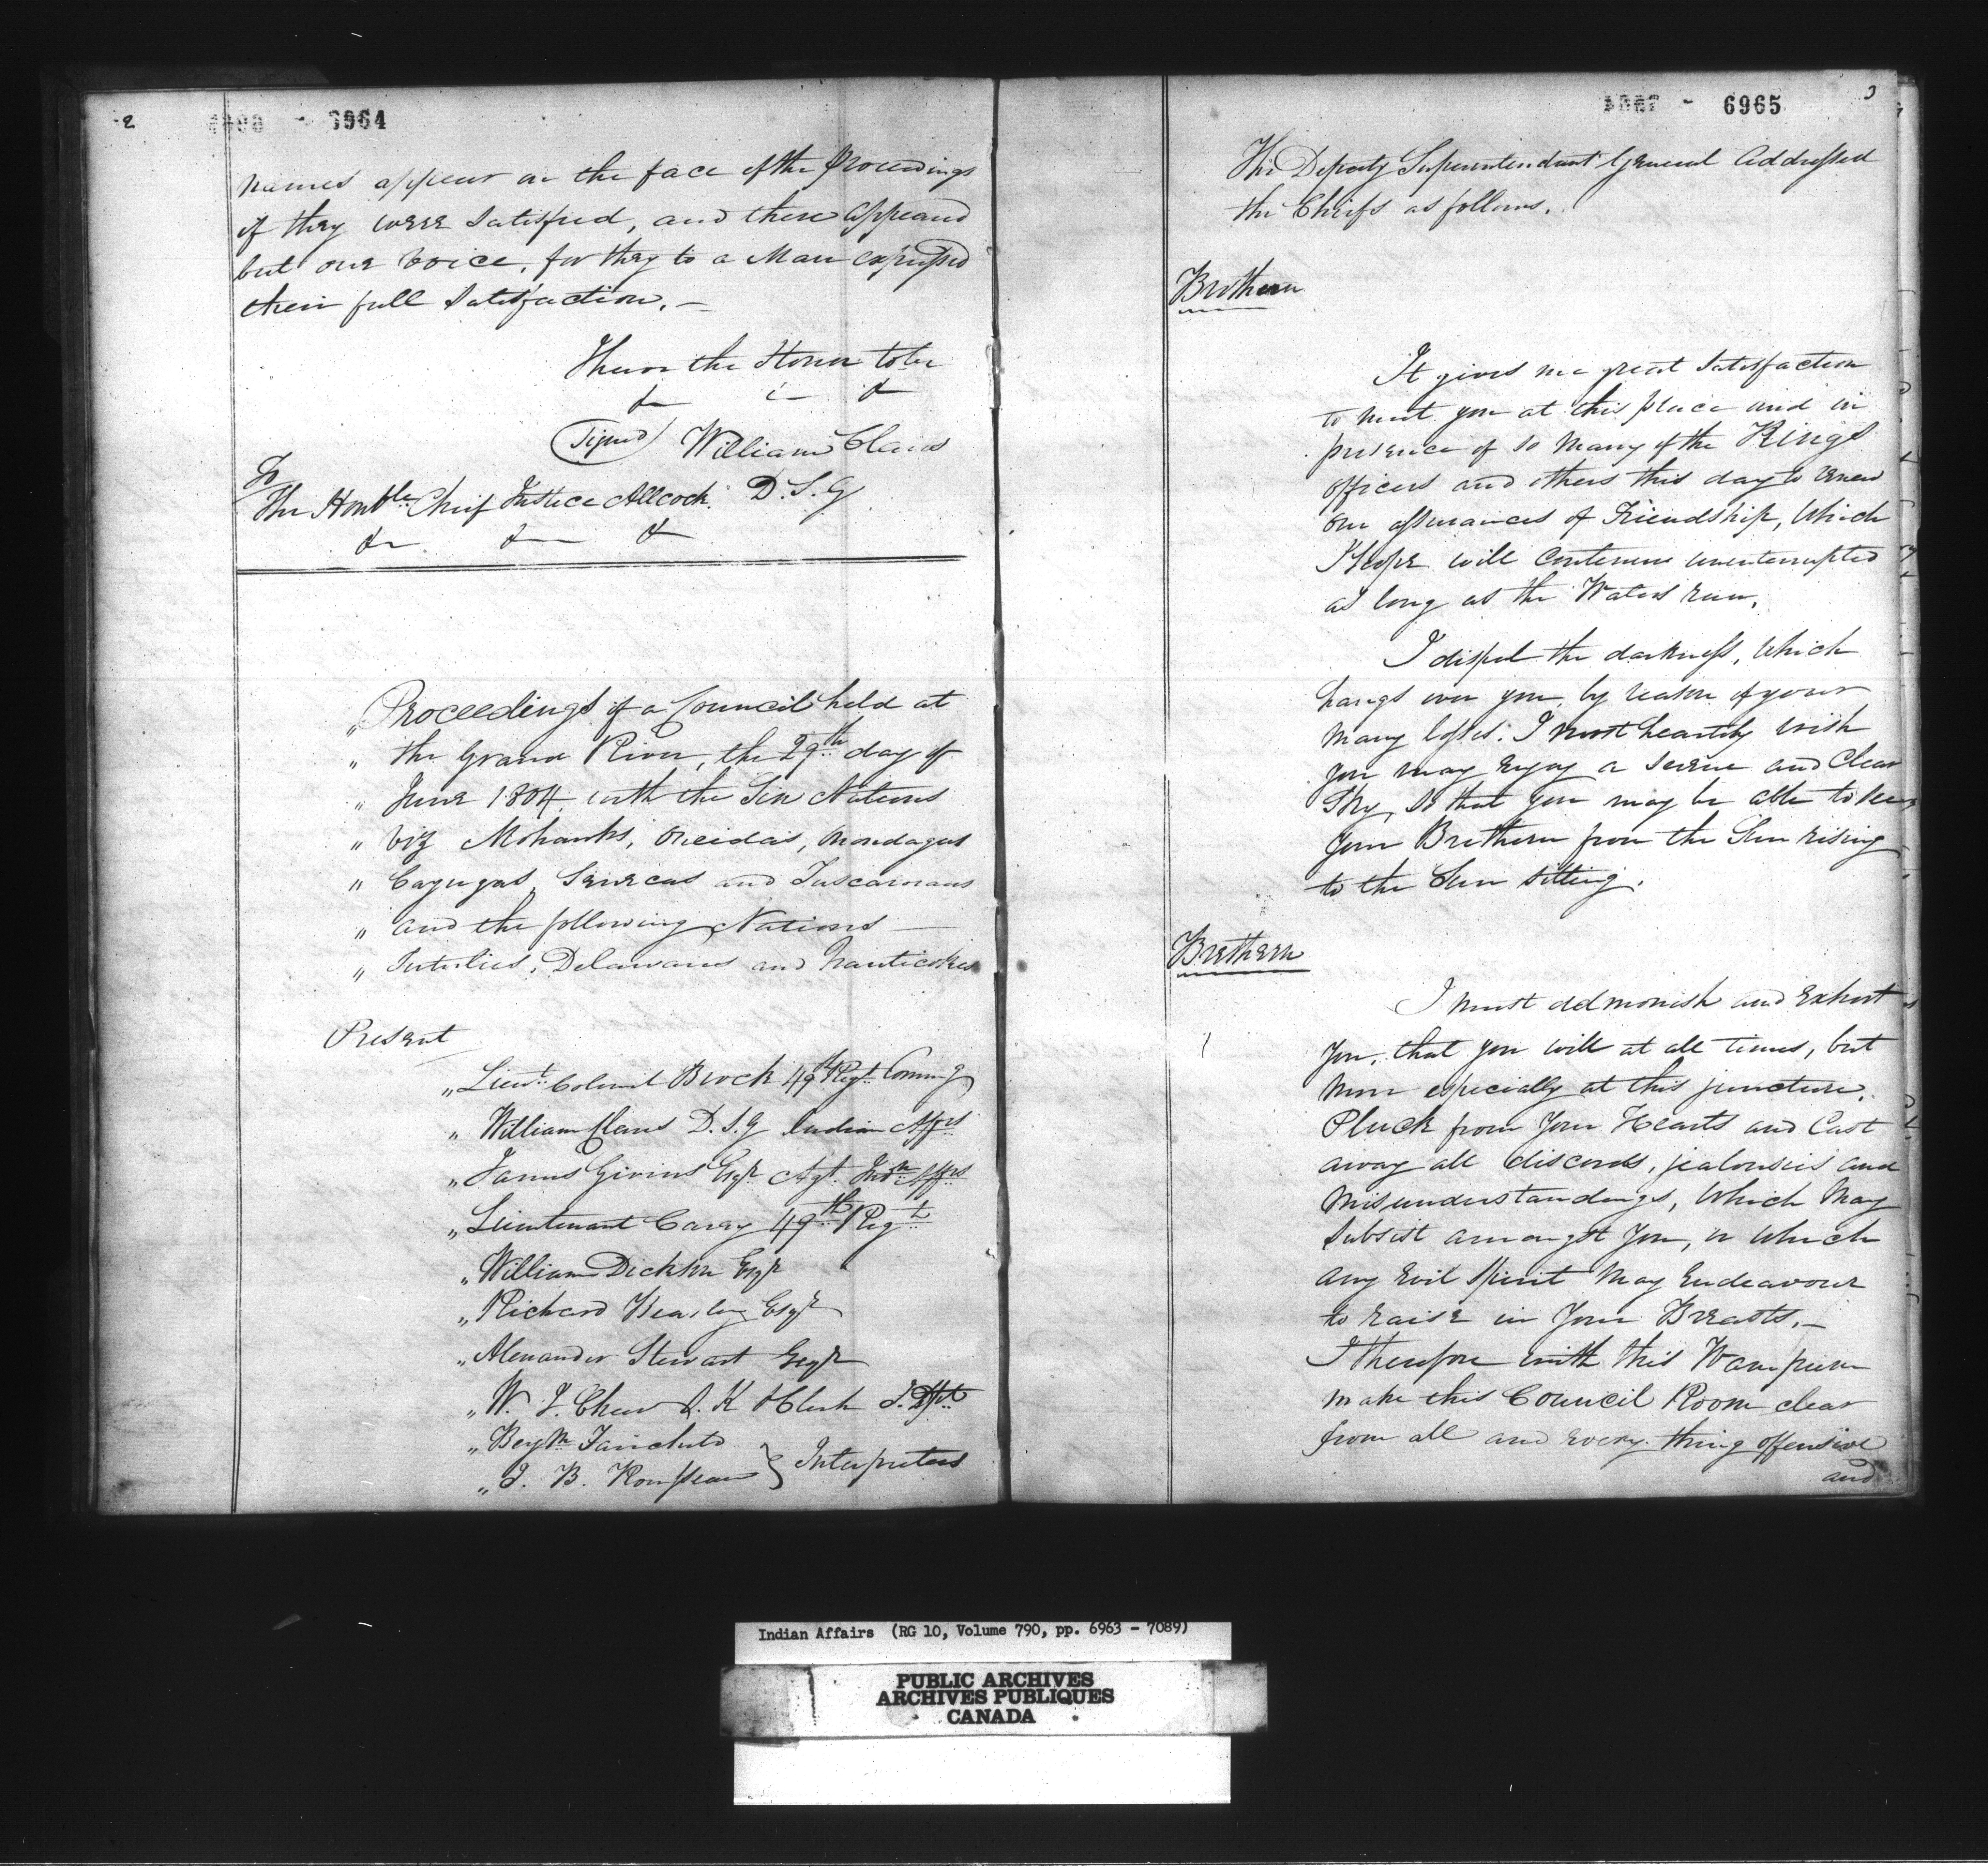 2
6964
names appear on the face of the Proceedings
if they were Satisfied, and there appeared
but one voice, for they to a Man expressed
their full Satisfaction. —
I have the Honor to be
&c &c &c
(Signed) William Claus
D. S. G.
To
The Honble Chief Justice Allcock.
&c &c &c
„ Proceedings of a Council held at
„ the Grand River, the 29th day of
„ June 1804 with the Six Nations
„ viz Mohawks, Oneidas, Onondagas
„ Cayugas, Senecas and Tuscaroras
„ and the following Nations —
„ Tutulies, Delawares and Nanticokes
Present
„ Lieut. Colonel Brock 49th Regt. Commg
„ William Claus D. S. G Indian Affrs
„ James Givins Esqr Agt. Indn Affrs
„ Lieutenant Carey 49th Regt
„ William Dickson Esqr
„ Richard Beasley Esqr
„ Alexander Stewart Esqr
„ W. J. Chew S. K & Clerk I. Dpt
„ Benjn Fairchild
„ J. B. Rousseau } Interpreters
3
6965
The Deputy Superintendant General Addressed
the Chiefs as follows.
Brothern
It gives me great Satisfaction
to meet you at this place and in
presence of so many of the Kings
officers and others this day to renew
our assurances of Friendship, which
I hope will continue uninterrupted
as long as the Waters run.
I dispel the darkness, which
hangs over you, by reason of your
many losses. I most heartily wish
you may enjoy a serene and Clear
Sky, so that you may be able to see
your Brethern from the Sun rising
to the Sun sitting.
Brethern
I must admonish and Exhort
you, that you will at all times, but
more especially at this juncture,
Pluck from your Hearts and Cast
away all discords, jealousies and
misunderstandings, which may
subsist amongst you, or which
any evil spirit may endeavour
to raise in your Breasts. —
I therefore with this Wampum
make this Council Room clear
from all and every thing offensive
and
Indian Affairs (RG 10, Volume 790, pp. 6963 - 7089)
PUBLIC ARCHIVES
ARCHIVES PUBLIQUES
CANADA